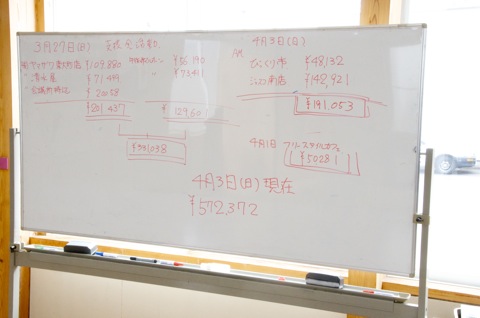 3月27日(日)
¥109,880
¥56,190
¥71,499
¥73,411
¥20058
¥201,437
¥129,601
¥331,038
4月3日(日)
びっくり市 ¥48,132
¥142,921
¥191,053
4月1日 フリースタイルカフェ
¥50281
4月3日(日)現在
¥572,372